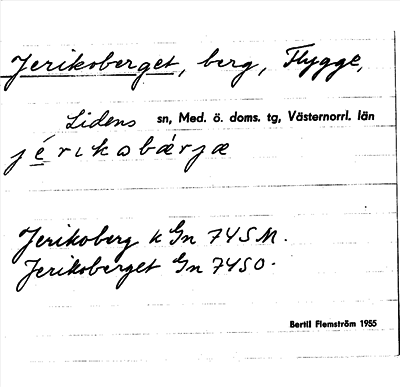 Jerikoberget, berg, Flygge,
Lidens sn, Med. ö. doms. tg, Västernorrl. län
jérikobǽrjæ
Jerikoberg k Gn 745M.
Jerikoberget Gn 7450.
Bertil Flemström 1955